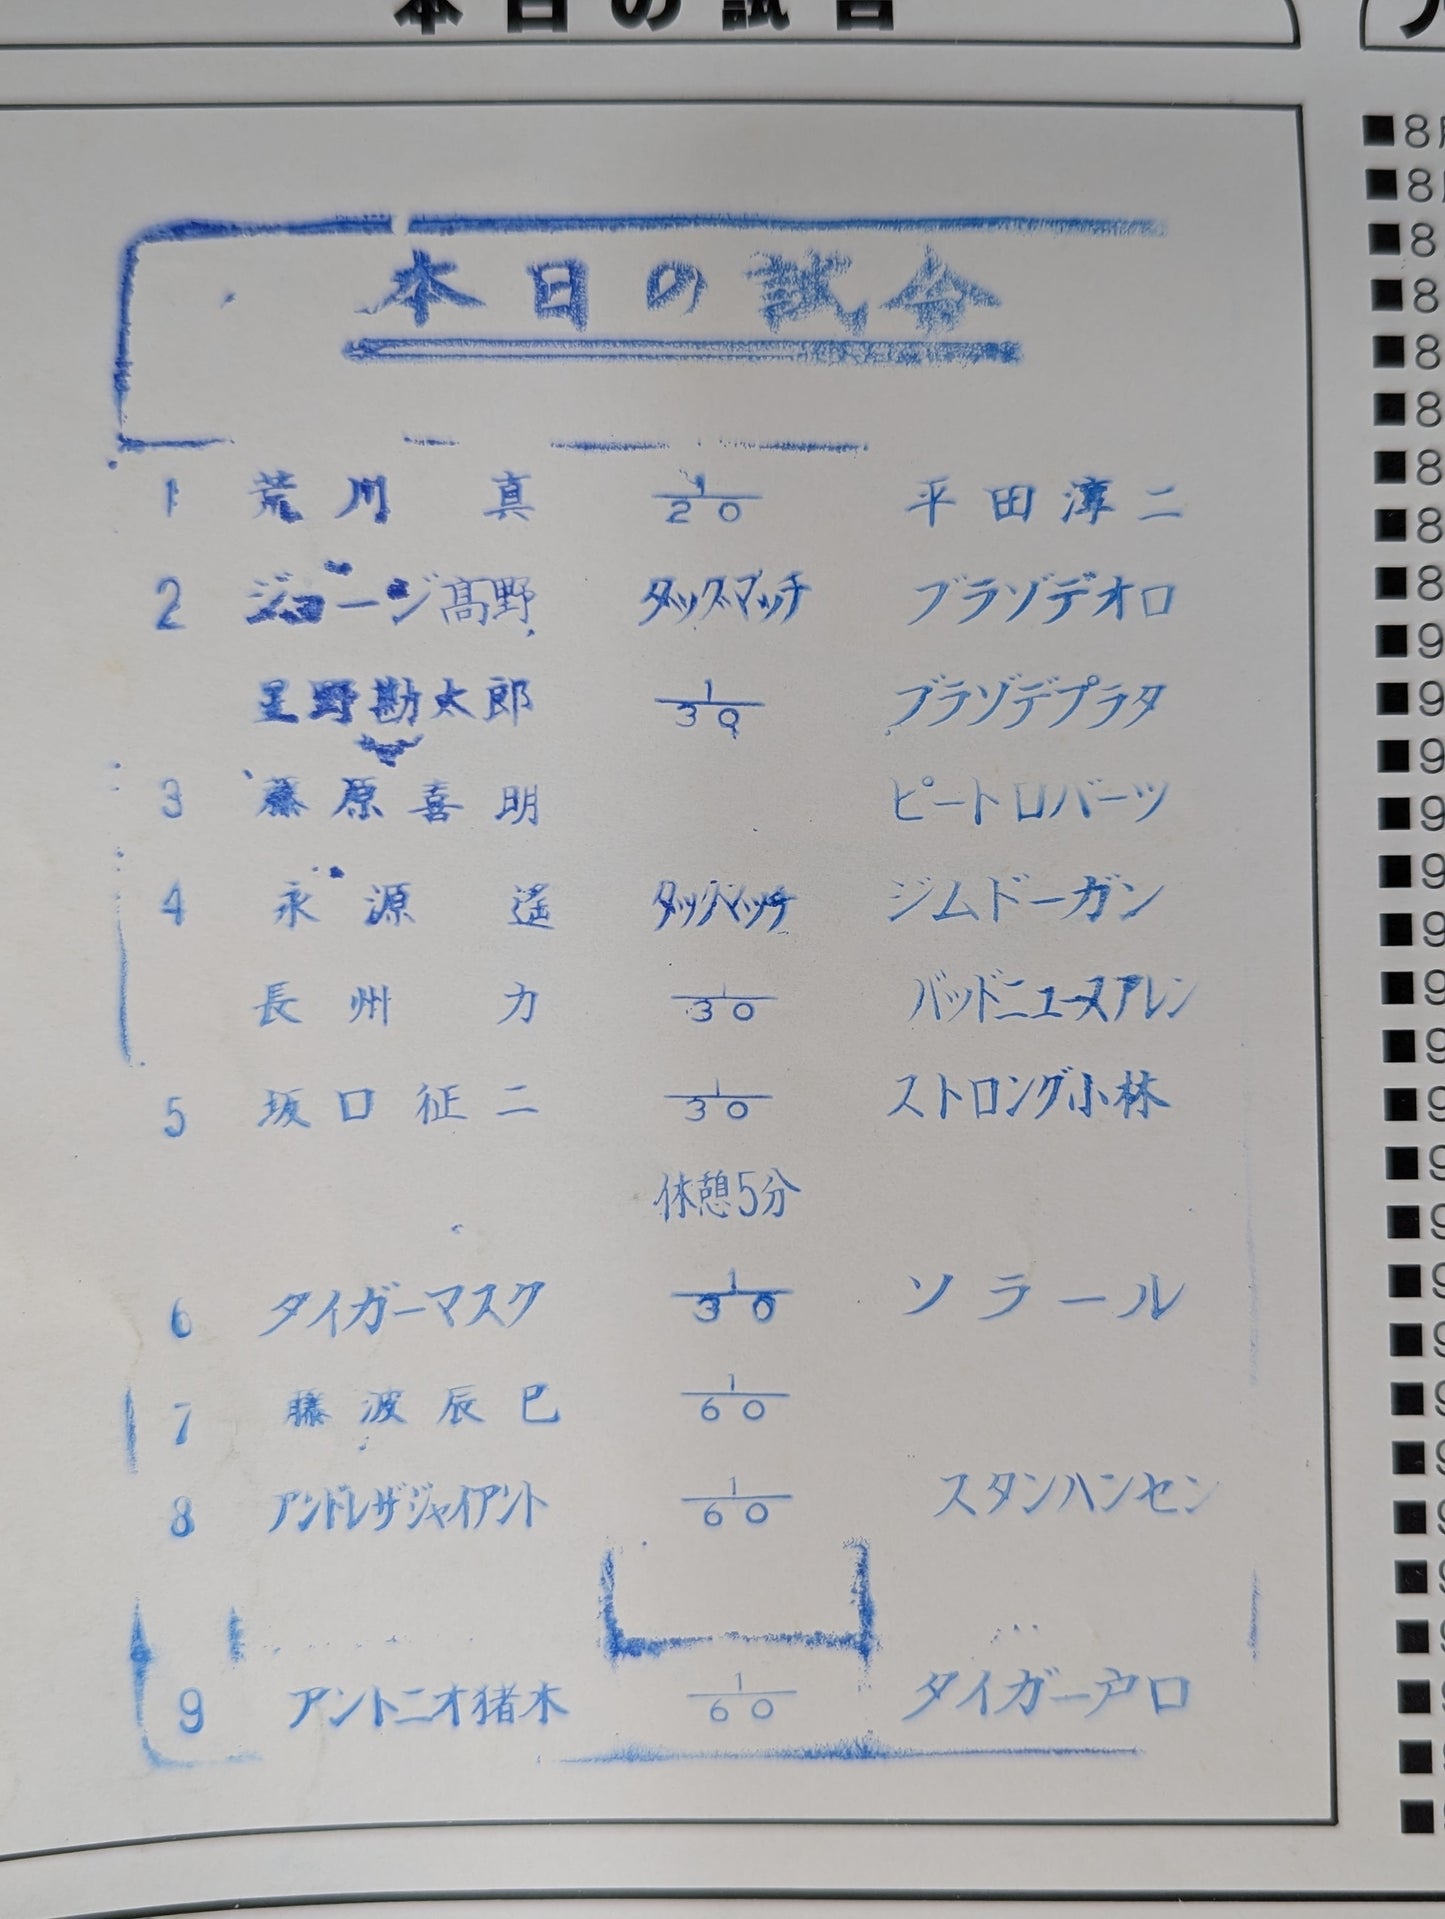 本日の試合
本日の試合
1 荒川 真 1/20 平田淳二
2 ジョージ高野 タッグマッチ ブラゾデオロ
星野勘太郎 1/30 ブラゾデプラタ
3 藤原喜明 ピートロバーツ
4 永源 遥 タッグマッチ ジムドーガン
長州 力 1/30 バッドニュースアレン
5 坂口征二 1/30 ストロング小林
休憩5分
6 タイガーマスク 1/30 ソラール
7 藤波辰巳 1/60
8 アンドレザジャイアント 1/60 スタンハンセン
9 アントニオ猪木 1/60 タイガー戸口